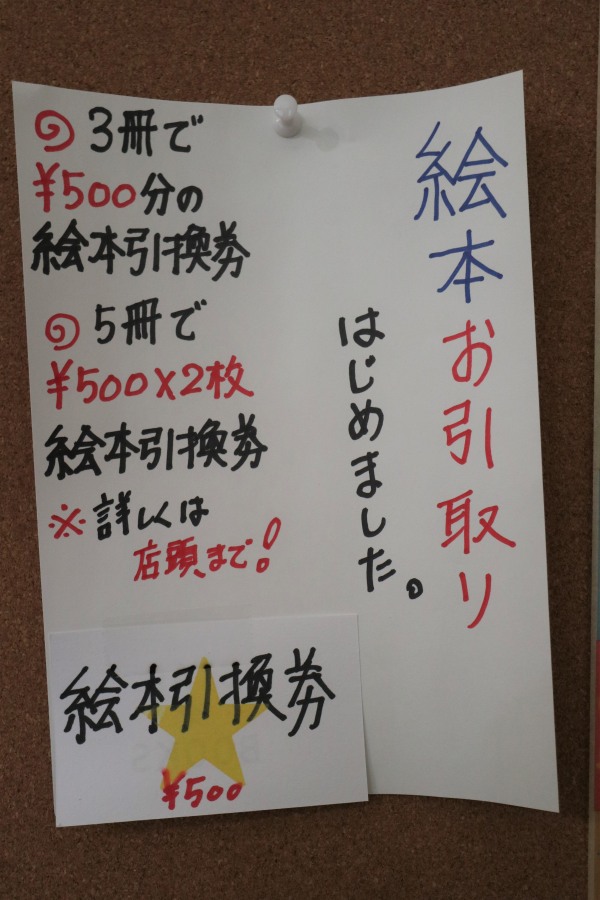 絵本お引取り
はじめました。
3冊で
¥500分の
絵本引換券
5冊で
¥500×2枚
絵本引換券
※詳しくは
店頭まで!
絵本引換券
¥500